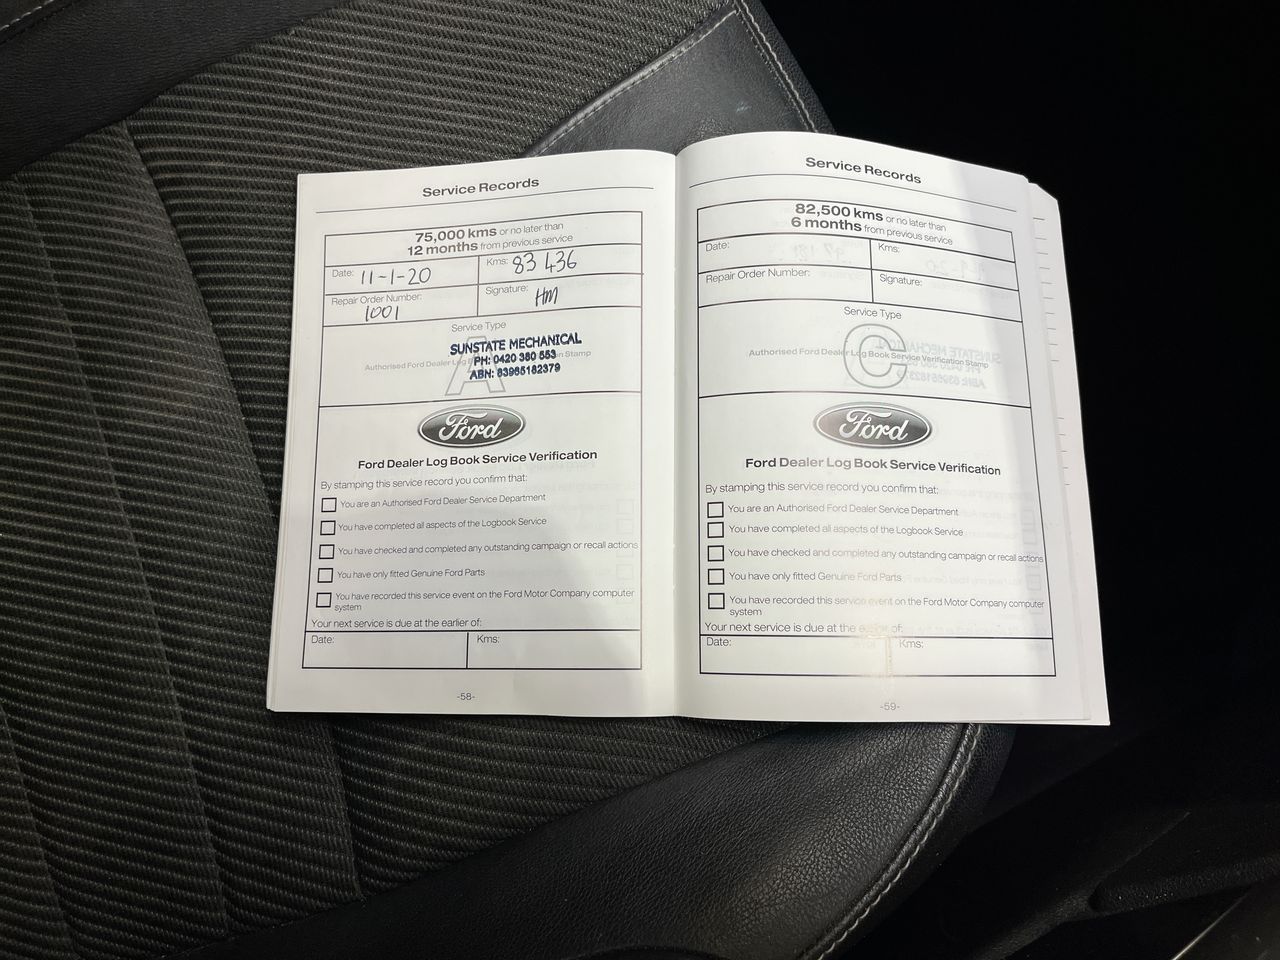 Service Records
75,000 kms or no later than
12 months from previous service
Date: 11-1-20 Kms: 83 436
Repair Order Number: 1001 Signature: HM
Service Type
A
SUNSTATE MECHANICAL
Authorised Ford Dealer Log Stamp
PH: 0420 380 553
ABN: 83965182379
Ford
Ford Dealer Log Book Service Verification
By stamping this service record you confirm that:
You are an Authorised Ford Dealer Service Department
You have completed all aspects of the Logbook Service
You have checked and completed any outstanding campaign or recall actions
You have only fitted Genuine Ford Parts
You have recorded this service event on the Ford Motor Company computer
system
Your next service is due at the earlier of:
Date: Kms:
-58-
Service Records
82,500 kms or no later than
6 months from previous service
Date: Kms:
Repair Order Number: Signature:
Service Type
C
Authorised Ford Dealer Log Book Service Verification Stamp
Ford
Ford Dealer Log Book Service Verification
By stamping this service record you confirm that:
You are an Authorised Ford Dealer Service Department
You have completed all aspects of the Logbook Service
You have checked and completed any outstanding campaign or recall actions
You have only fitted Genuine Ford Parts
You have recorded this service event on the Ford Motor Company computer
system
Your next service is due at the earlier of:
Date: Kms:
-59-